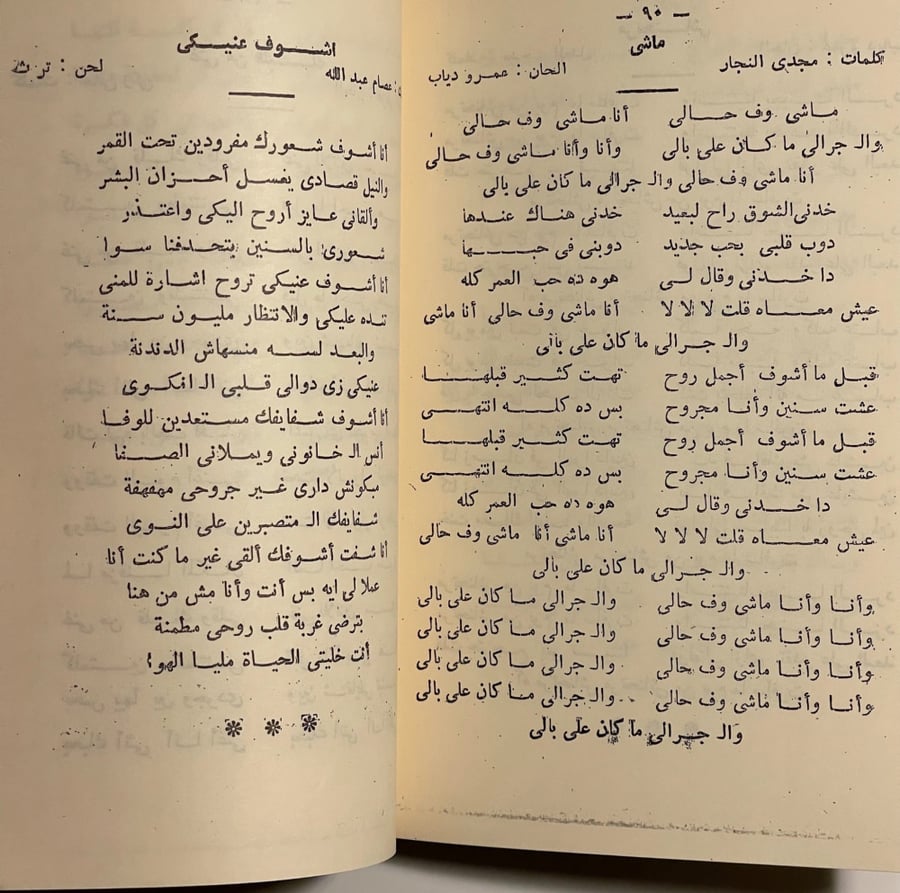 — ٩٠ —
ماشى
كلمات : مجدى النجار     الحان : عمرو دياب
ماشى وف حالى     أنا ماشى وف حالى
والـ جرالى ما كان على بالى     وأنا وأنا ماشى وف حالى
أنا ماشى وف حالى والـ جرالى ما كان على بالى
خدنى الشوق راح لبعيد     خدنى هناك عندها
دوب قلبى بحب جديد     دوبنى فى حبها
دا خدنى وقال لى     هوه ده حب العمر كله
عيش معاه قلت لا لا لا     أنا ماشى وف حالى أنا ماشى
والـ جرالى ما كان على بالى
قبل ما أشوف أجمل روح     تهت كثير قبلها
عشت سنين وأنا مجروح     بس ده كله انتهى
قبل ما أشوف أجمل روح     تهت كثير قبلها
عشت سنين وأنا مجروح     بس ده كله انتهى
دا خدنى وقال لى     هوه ده حب العمر كله
عيش معاه قلت لا لا لا     أنا ماشى أنا ماشى وف حالى
والـ جرالى ما كان على بالى
وأنا وأنا ماشى وف حالى     والـ جرالى ما كان على بالى
وأنا وأنا ماشى وف حالى     والـ جرالى ما كان على بالى
وأنا وأنا ماشى وف حالى     والـ جرالى ما كان على بالى
وأنا وأنا ماشى وف حالى     والـ جرالى ما كان على بالى
والـ جرالى ما كان على بالى
اشوف عنيكى
: عصام عبد الله     لحن : تراث
أنا أشوف شعورك مفرودين تحت القمر
والنيل قصادى يغسل أحزان البشر
وألقانى عايز أروح اليكى واعتذر
شعورى بالسنين يتحدفنا سوا
أنا أشوف عنيكى تروح اشارة للمنى
تنده عليكى والانتظار مليون سنة
والبعد لسه منسهاش الدندنة
عنيكى زى دوالى قلبى الـ انكوى
أنا أشوف شفايفك مستعدين للوفا
أنس الـ خانونى ويملانى الصفا
ميكونش دارى غير جروحى مهفهفة
شفايفك الـ متصبرين على النوى
أنا شفت أشوفك ألقى غير ما كنت أنا
عملالى ايه بس أنت وأنا مش من هنا
بترضى غربة قلب روحى مطمنة
أنت خليتى الحياة مليا الهوا